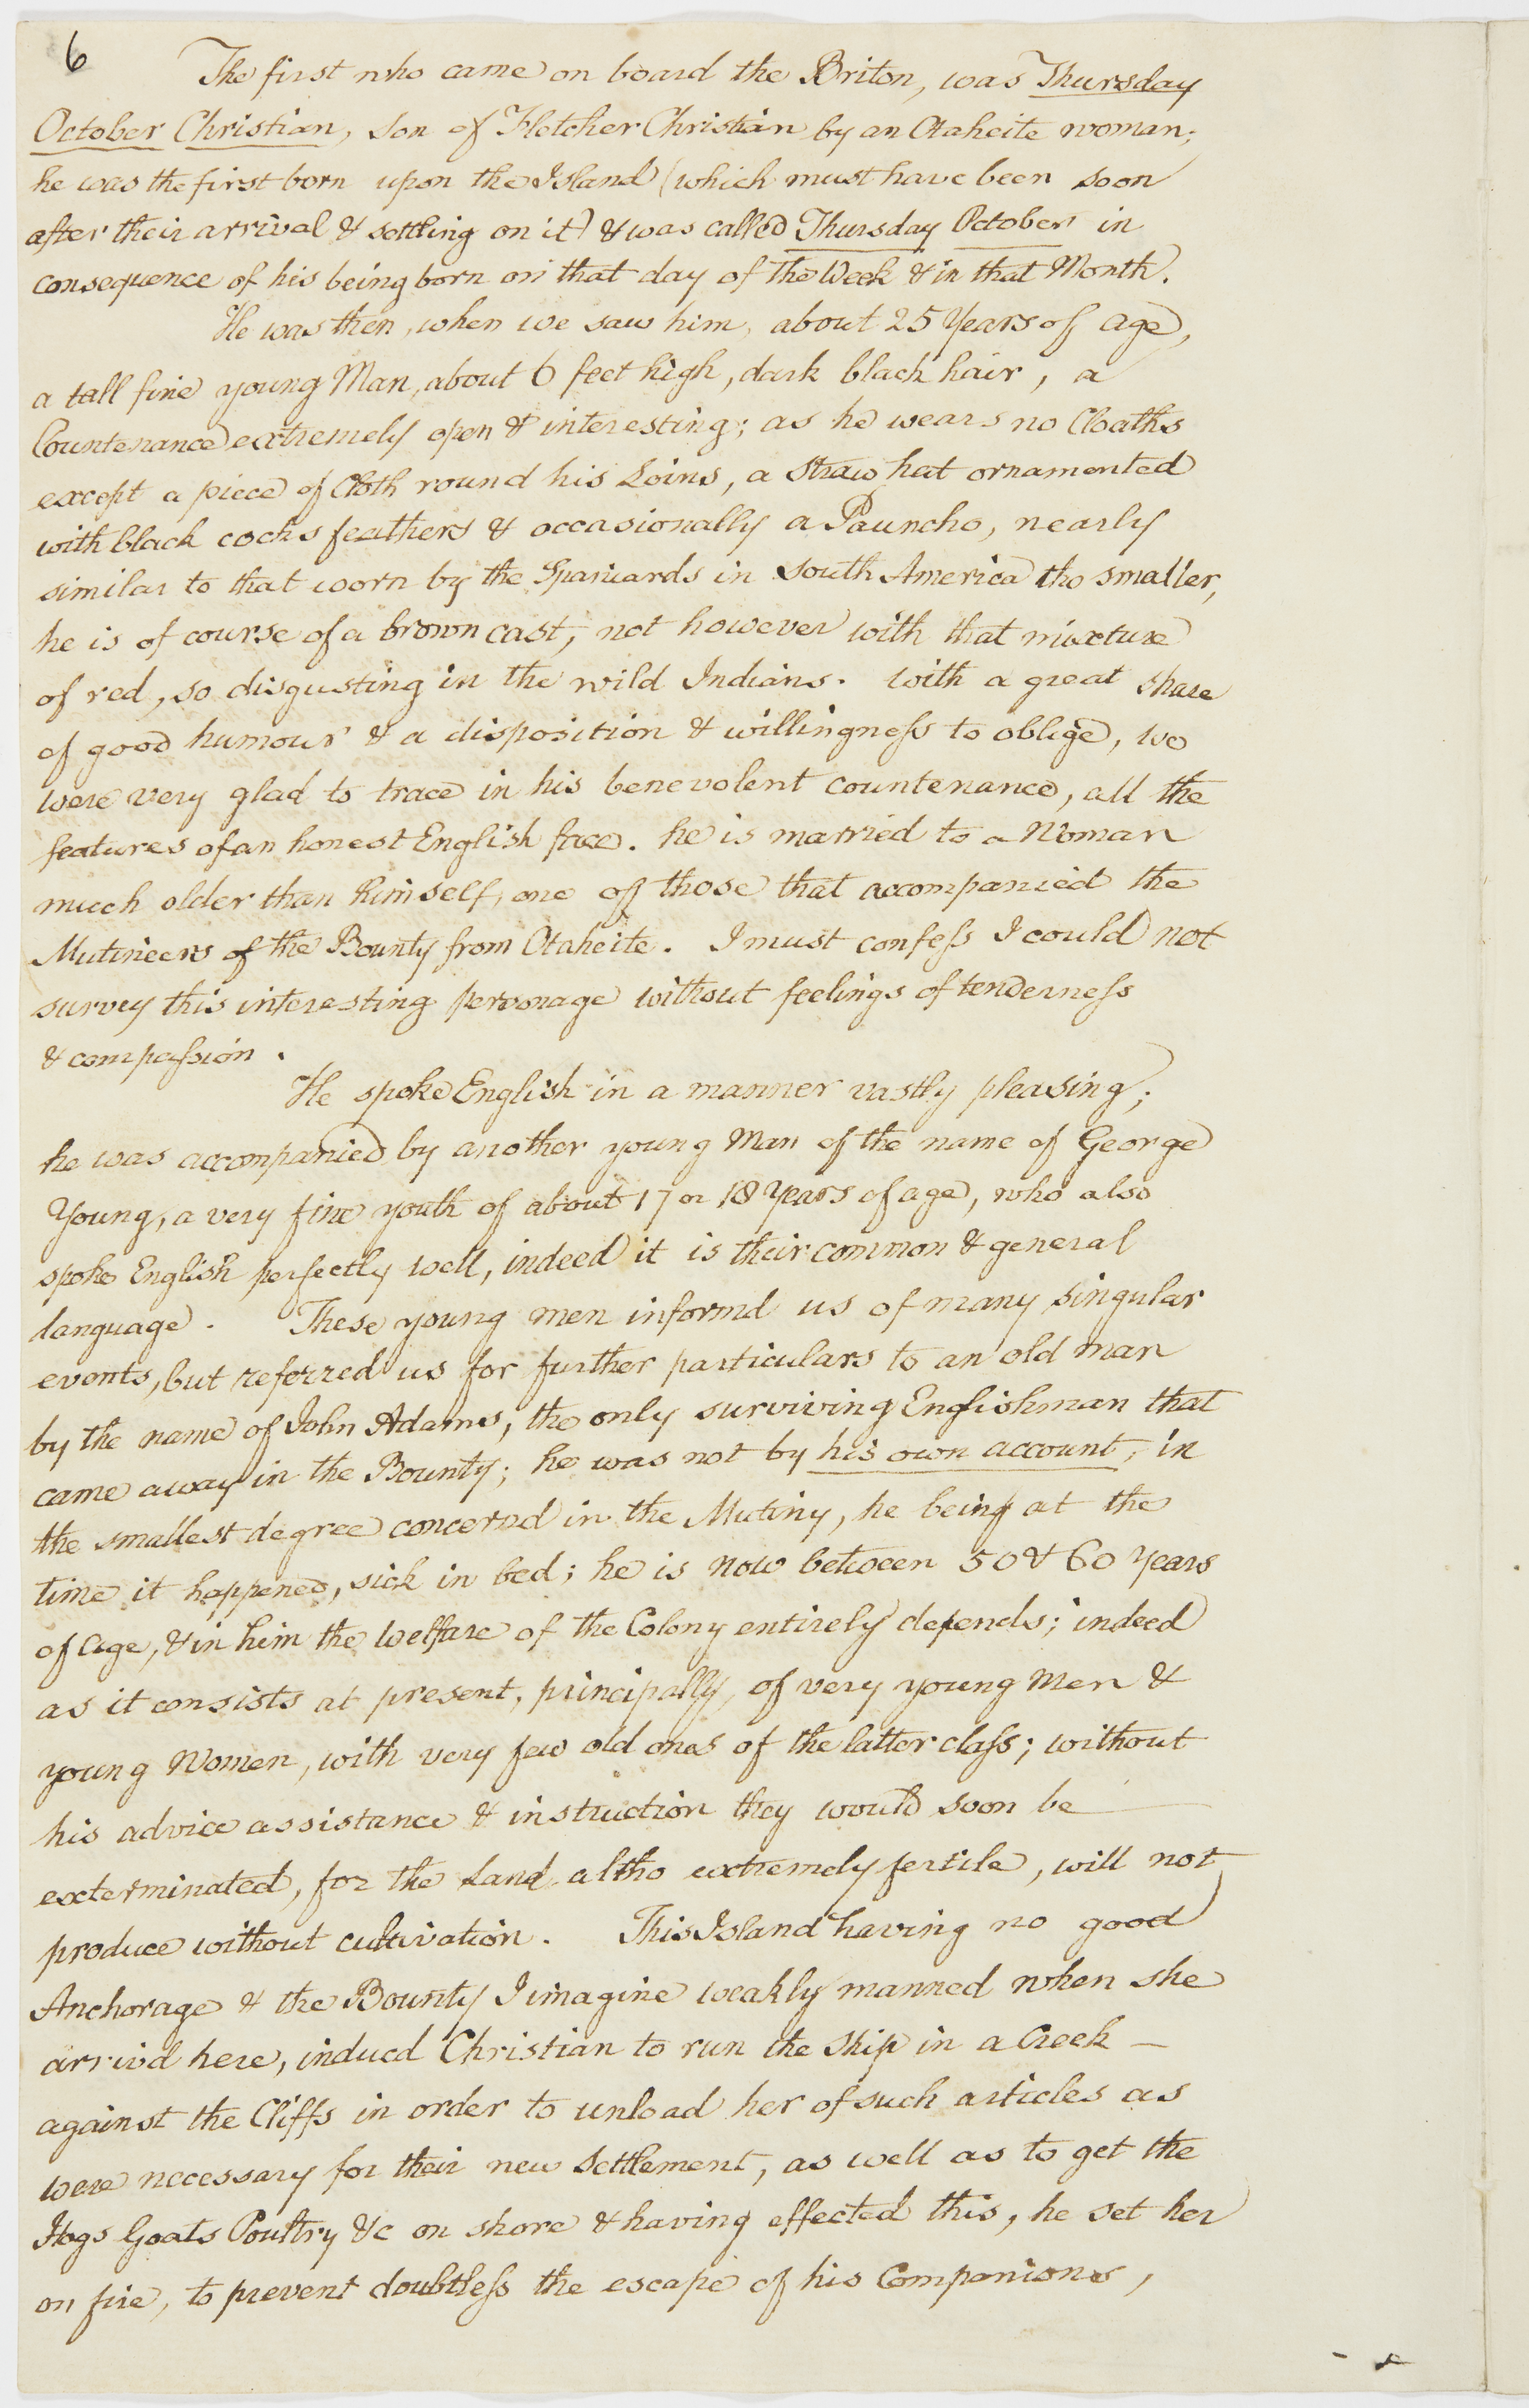 6
The first who came on board the Briton, was Thursday
October Christian, son of Fletcher Christian by an Otaheite woman;
he was the first born upon the Island (which must have been soon
after their arrival & settling on it) & was called Thursday October in
consequence of his being born on that day of the Week & in that Month.
He was then, when we saw him, about 25 Years of age,
a tall fine young Man, about 6 feet high, dark black hair, a
Countenance extremely open & interesting; as he wears no Cloaths
except a piece of Cloth round his Loins, a Straw hat ornamented
with black cocks feathers & occasionally a Pauncho, nearly
similar to that worn by the Spaniards in South America tho smaller,
he is of course of a brown cast, not however with that mixture
of red, so disgusting in the wild Indians. With a great share
of good humour & a disposition & willingness to oblige, we
were very glad to trace in his benevolent countenance, all the
features of an honest English face. he is married to a Woman
much older than himself, one of those that accompanied the
Mutineers of the Bounty from Otaheite. I must confess I could not
survey this interesting personage without feelings of tenderness
& compassion.
He spoke English in a manner vastly pleasing;
he was accompanied by another young Man of the name of George
Young, a very fine youth of about 17 or 18 Years of age, who also
spoke English perfectly well, indeed it is their common & general
language. These young men informd us of many singular
events, but referred us for further particulars to an old man
by the name of John Adams, the only surviving Englishman that
came away in the Bounty; he was not by his own account, in
the smallest degree concernd in the Mutiny, he being at the
time it happened, sick in bed; he is now between 50 & 60 Years
of age, & in him the welfare of the Colony entirely depends; indeed
as it consists at present, principally, of very young Men &
young Women, with very few old ones of the latter class; without
his advice assistance & instruction they would soon be
exterminated, for the Land altho extremely fertile, will not
produce without cultivation. This Island having no good
Anchorage & the Bounty I imagine weakly manned when she
arrivd here, inducd Christian to run the Ship in a Creek —
against the Cliffs in order to unload her of such articles as
were necessary for their new Settlement, as well as to get the
Hogs Goats Poultry &c on shore & having effected this, he set her
on fire, to prevent doubtless the escape of his Companions,